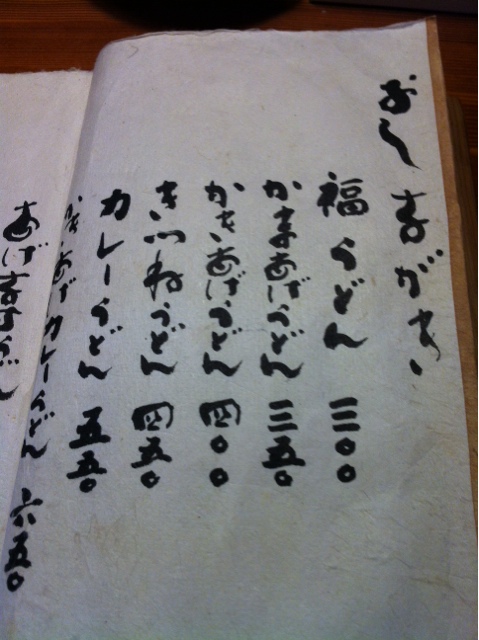 おしながき
福うどん 三〇〇
かまあげうどん 三五〇
かきあげうどん 四〇〇
きつねうどん 四五〇
カレーうどん 五五〇
かきあげカレーうどん 六五〇
あげ うどん